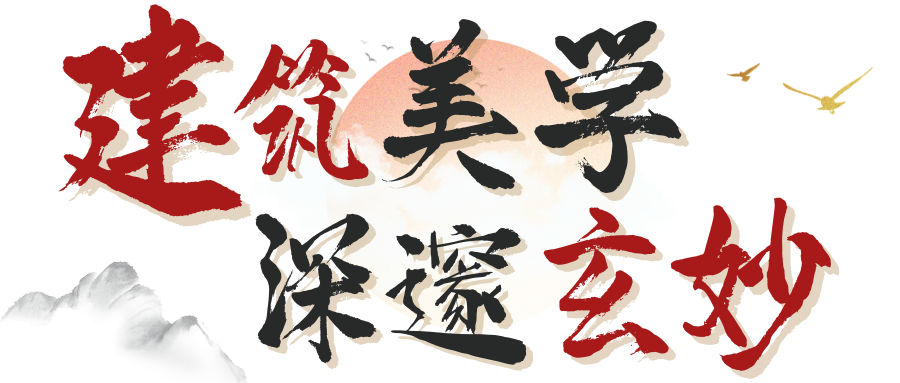 建筑美学
深邃玄妙